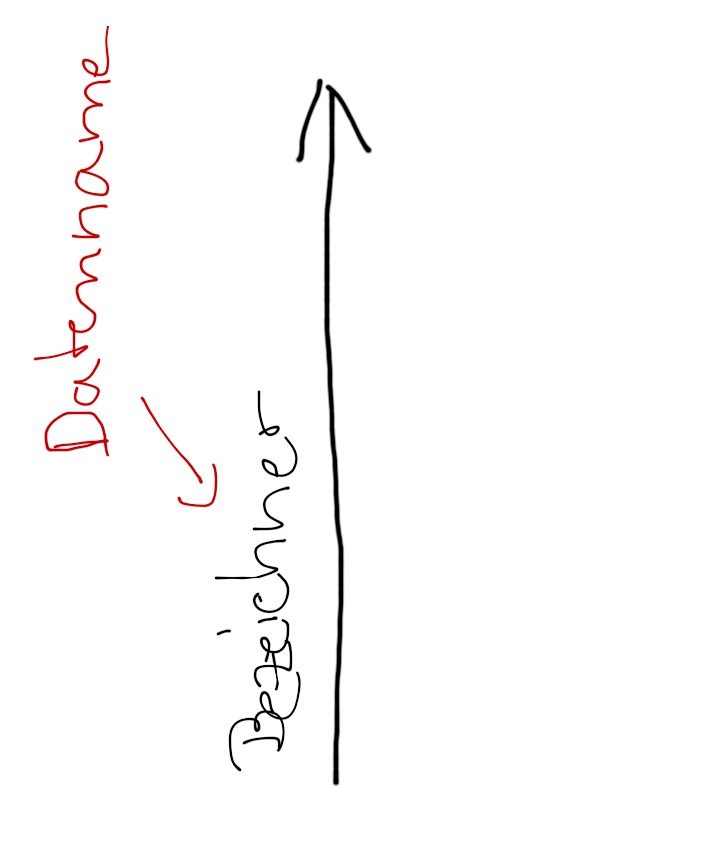 Datenname
Bezeichner